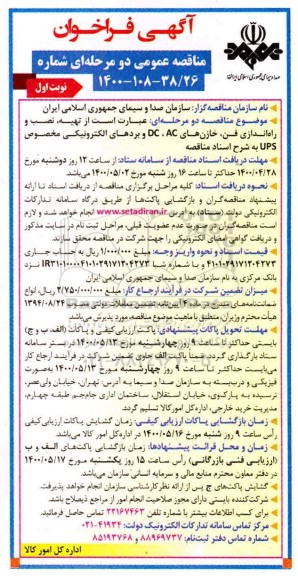 آگهی فراخوان
مناقصه عمومی دو مرحله‌ای شماره
۱۴۰۰-۱۰۸-۳۸/۲۶
صدا و سیمای جمهوری اسلامی ایران
نوبت اول
نام سازمان مناقصه‌گزار: سازمان صدا و سیمای جمهوری اسلامی ایران
موضوع مناقصه دو مرحله‌ای: عبارت است از تهیه، نصب و
راه‌اندازی فن، خازن‌های DC ، AC و بردهای الکترونیکی مخصوص
UPS به شرح اسناد مناقصه
مهلت دریافت اسناد مناقصه از سامانه ستاد: از ساعت ۱۲ روز دوشنبه مورخ
۱۴۰۰/۰۴/۲۸ لغایت ساعت ۱۶ روز شنبه مورخ ۱۴۰۰/۰۵/۰۲ می‌باشد.
نحوه دریافت اسناد: کلیه مراحل برگزاری مناقصه از دریافت اسناد تا ارائه
پیشنهاد مناقصه‌گران و بازگشایی پاکت‌ها از طریق درگاه سامانه تدارکات
الکترونیکی دولت (ستاد) به آدرس www.setadiran.ir انجام خواهد شد و لازم
است مناقصه‌گران در صورت عدم عضویت قبلی، مراحل ثبت نام در سایت مذکور
و دریافت گواهی امضای الکترونیکی را جهت شرکت در مناقصه محقق سازند.
قیمت اسناد و نحوه واریز وجه: مبلغ ۱/۰۰۰/۰۰۰ ریال به حساب جاری
بانک مرکزی به نام سازمان صدا و سیمای جمهوری اسلامی ایران
میزان تضمین شرکت در فرآیند ارجاع کار: مبلغ ۲/۷۵۰/۰۰۰/۰۰۰ ریال، انواع
هیأت محترم وزیران منطبق با ماهیت موضوع مناقصه، مورد پذیرش می‌باشد.
مهلت تحویل پاکات پیشنهادی: پاکت ارزیابی کیفی و پاکات (الف و ب و ج)
بایستی حداکثر تا ساعت ۹ روز چهارشنبه مورخ ۱۴۰۰/۰۵/۱۳ در بستر سامانه
ستاد بارگذاری گردد. ضمناً پاکت الف حاوی تضمین شرکت در فرآیند ارجاع کار
می‌بایست حداکثر تا ساعت ۹ روز چهارشنبه مورخ ۱۴۰۰/۰۵/۱۳ به‌صورت
فیزیکی و دربسته به سازمان صدا و سیما به آدرس: تهران، خیابان ولی‌عصر،
نرسیده به پارک‌وی، خیابان استقلال، ساختمان اداری جام‌جم، طبقه چهارم،
مدیریت خرید خارجی، اداره کل امور کالا تسلیم گردد.
زمان بازگشایی پاکات ارزیابی کیفی: زمان گشایش پاکات ارزیابی کیفی
رأس ساعت ۹ روز شنبه مورخ ۱۴۰۰/۰۵/۱۶ در اداره کل امور کالا می‌باشد.
زمان و محل قرائت پیشنهادها: زمان بازگشایی پاکت‌های الف و ب
(ارزیابی فنی بازرگانی) رأس ساعت ۱۵ روز یکشنبه مورخ ۱۴۰۰/۰۵/۱۷
در دفتر معاون محترم منابع مالی و سرمایه انسانی سازمان می‌باشد.
گشایش پاکت‌های ج پس از ارائه نظر کارشناسی سازمان انجام خواهد پذیرفت.
شرکت‌کننده بایستی دارای مجوز صلاحیت انجام امور از مراجع ذیصلاح باشد.
برای کسب اطلاعات بیشتر با شماره تلفن ۲۲۱۶۷۴۶۳ تماس حاصل فرمایید.
مرکز تماس سامانه تدارکات الکترونیک دولت: ۴۱۹۳۴-۰۲۱
شماره تماس دفتر ثبت‌نام: ۸۸۹۶۹۷۳۷ و ۸۵۱۹۳۷۶۸
اداره کل امور کالا